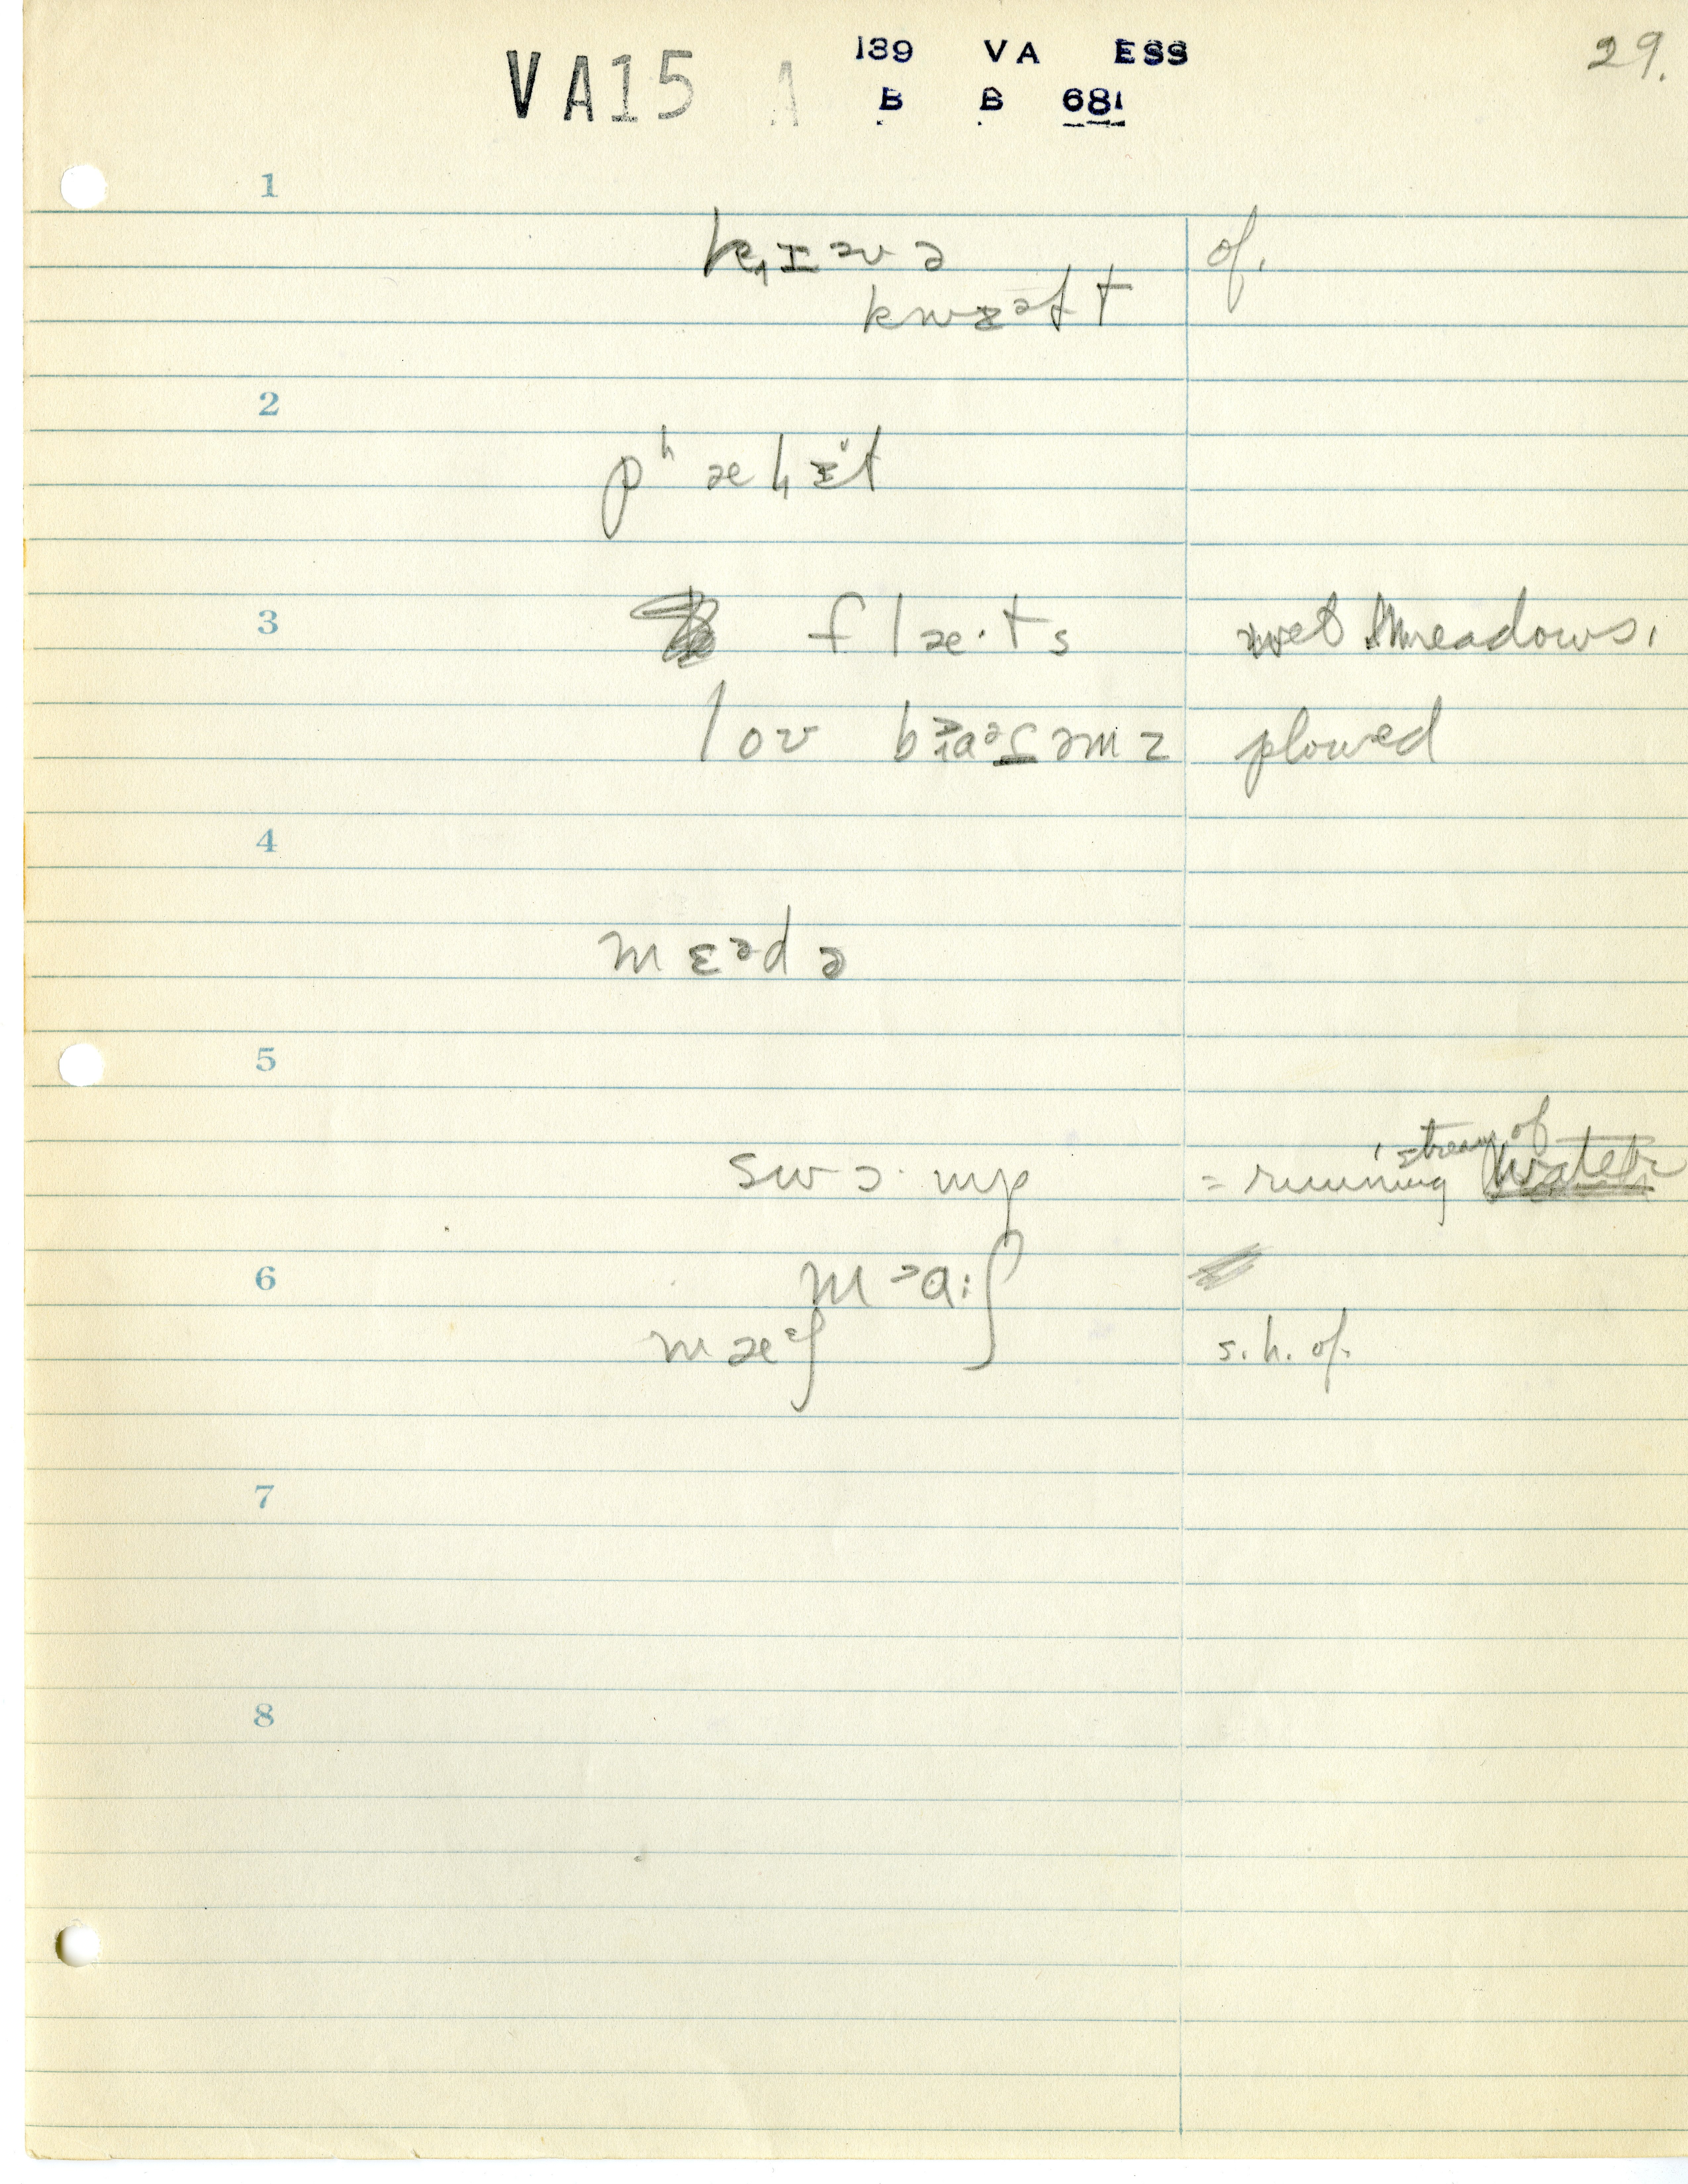 VA15 A 139 VA ESS 29.
B B 681
1
k̟ɪəvə of.
kwɛəɫt
2
pʰæɫɪt
3 flæ·ts wet meadows.
lov plowed
4
mɛədə
5
stream of
swɔ·mp = running water
6 m
mæᵋʃ s.h. of.
7
8